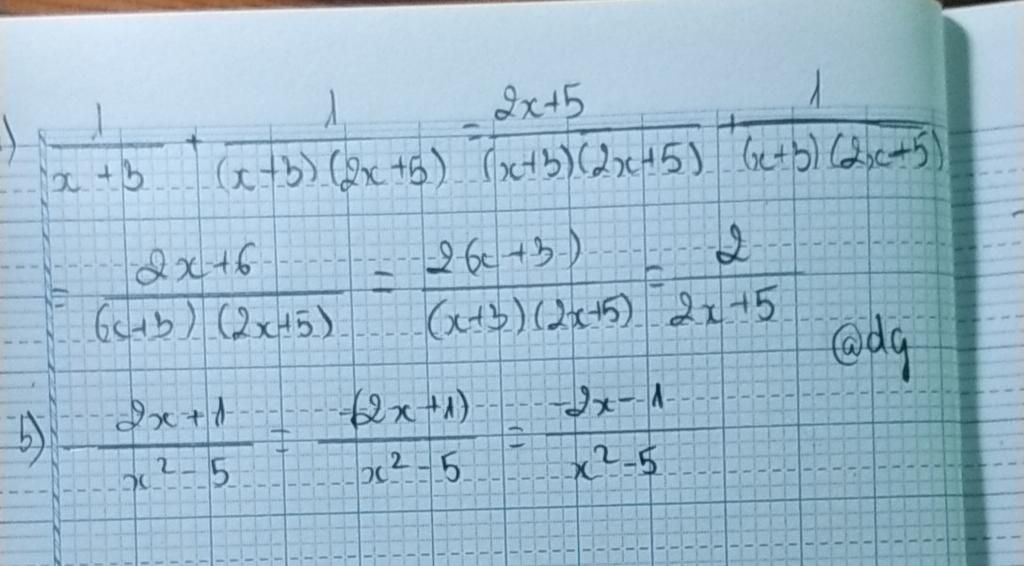 ) 1/(x+3) + 1/((x+3)(2x+5)) = (2x+5)/((x+3)(2x+5)) + 1/((x+3)(2x+5))
= (2x+6)/((x+3)(2x+5)) = 2(x+3)/((x+3)(2x+5)) = 2/(2x+5)
@dg
b) -(2x+1)/(x²-5) = -(2x+1)/(x²-5) = (-2x-1)/(x²-5)